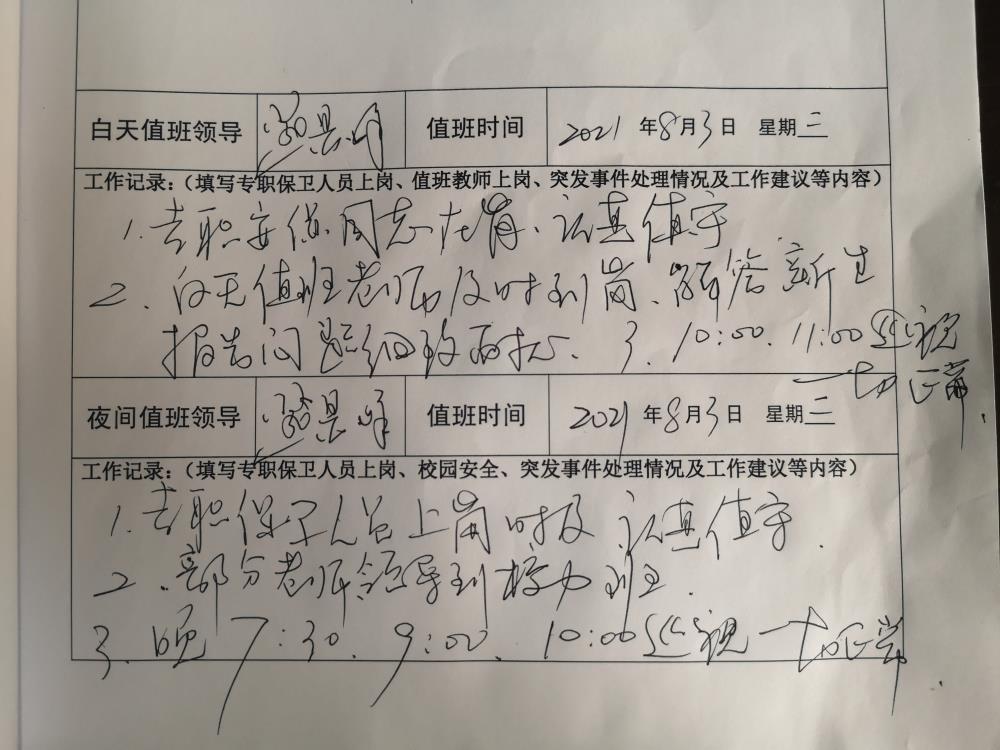 白天值班领导 值班时间 2021年8月3日 星期三
工作记录：（填写专职保卫人员上岗、值班教师上岗、突发事件处理情况及工作建议等内容）
1.专职安保同志在岗、认真值守
2.白天值班老师及时到岗、解答新生
报告问题细致耐心. 3. 10:00. 11:00巡视
一切正常.
夜间值班领导 值班时间 2021年8月3日 星期三
工作记录：（填写专职保卫人员上岗、校园安全、突发事件处理情况及工作建议等内容）
1.专职保卫人员上岗时及 认真值守.
2.部分老师领导到校加班.
3.晚7:30. 9:00. 10:00巡视一切正常